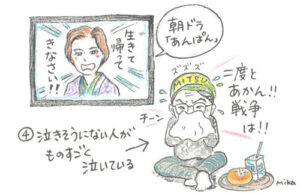 朝ドラ
「あんぱん」
生きて
帰って
きなさい!!
ズズズ
MITSU
二度と
あかん!!
戦争
は!!
チーン
④泣きそうにない人が
ものすごく
泣いている
Mika